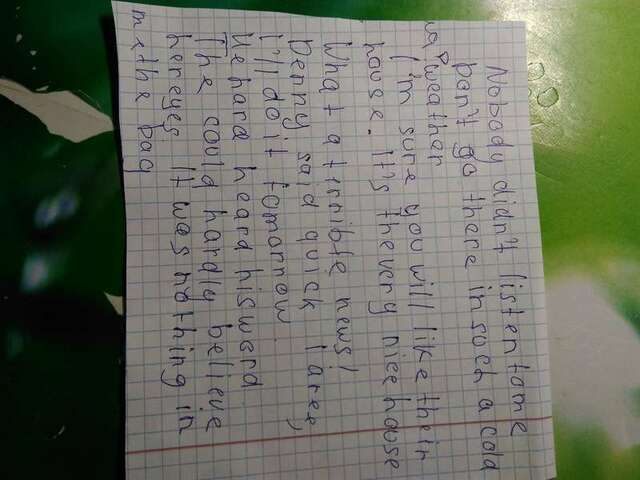 Nobody didn't listen to me
Don't go there in such a cold
weather
I'm sure you will like their
house. It's the very nice house
What a terrible news!
Denny said quick
I'll do it tomorrow.
He hard heard his word
The could hardly believe
her eyes. It was nothing in
the bag